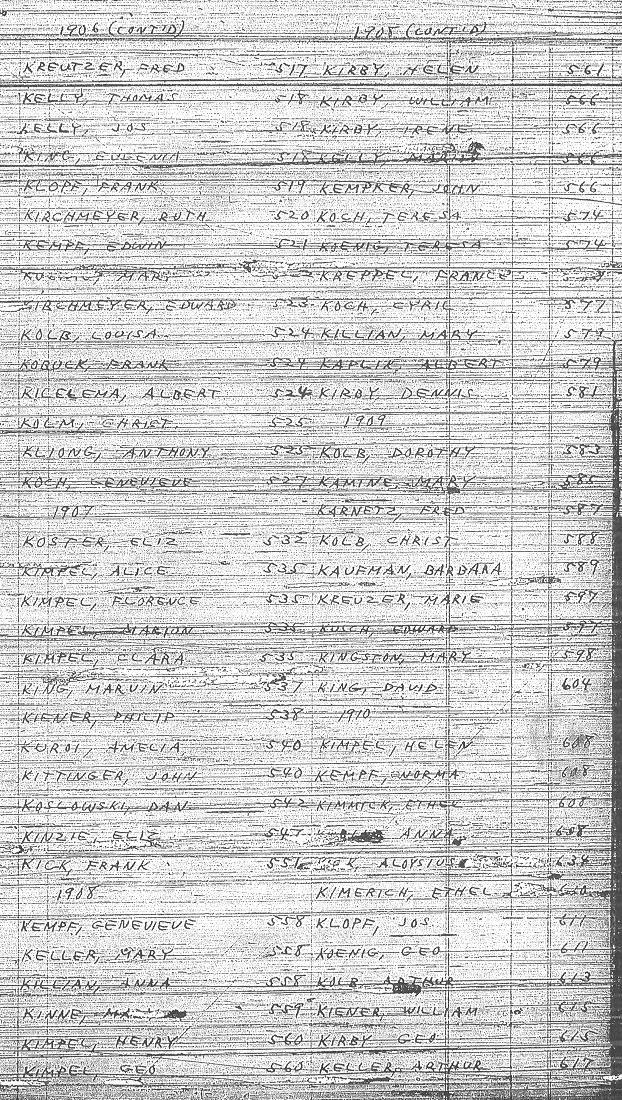 1906 (CONT'D)
KREUTZER, FRED 517
KELLY, THOMAS 518
KELLY, JOS 518
KING, EUGENIA 518
KLOPF, FRANK 519
KIRCHMEYER, RUTH 520
KEMPF, EDWIN 521
MARY
KIRCHMEYER, EDWARD 523
KOLB, LOUISA 524
KOBUCK, FRANK 524
ALBERT 524
KOLM, CHRIST. 525
KLIONG, ANTHONY 525
KOCH, GENEVIEVE 527
1907
KOSTER, ELIZ 532
KIMPEL, ALICE 535
KIMPEL, FLORENCE 535
KIMPEL, MARION 535
KIMPEL, CLARA 535
KING, MARVIN 537
KIENER, PHILIP 538
AMELIA 540
KITTINGER, JOHN 540
KOSLOWSKI, DAN 542
KINZIE, ELIZ 547
KICK, FRANK 551
1908
KEMPF, GENEVIEVE 558
KELLER, MARY 558
KILLIAN, ANNA 558
KINNE, 559
KIMPEL, HENRY 560
KIMPEL, GEO 560
1908 (CONT'D)
KIRBY, HELEN 561
KIRBY, WILLIAM 566
KIRBY, IRENE 566
KELLY, 566
KEMPKER, JOHN 566
KOCH, TERESA 574
KOENIG, TERESA 574
KREPPEL, FRANCES
KOCH, CYRIL 577
KILLIAN, MARY 579
KAPLIK, ALBERT 579
KIRBY, DENNIS 581
1909
KOLB, DOROTHY 583
KAMINE, MARY 585
KARNETZ, FRED 587
KOLB, CHRIST 588
KAUFMAN, BARBARA 589
KREUZER, MARIE 597
EDWARD 597
KINGSTON, MARY 598
KING, DAVID 604
1910
KIMPEL, HELEN 608
KEMPF, NORMA 608
KIMMICK, ETHEL 608
ANNA 608
ALOYSIUS 634
KIMERICH, ETHEL
KLOPF, JOS 611
KOENIG, GEO 611
KOLB, ARTHUR 613
KIENER, WILLIAM 615
KIRBY GEO 615
KELLER, ARTHUR 617